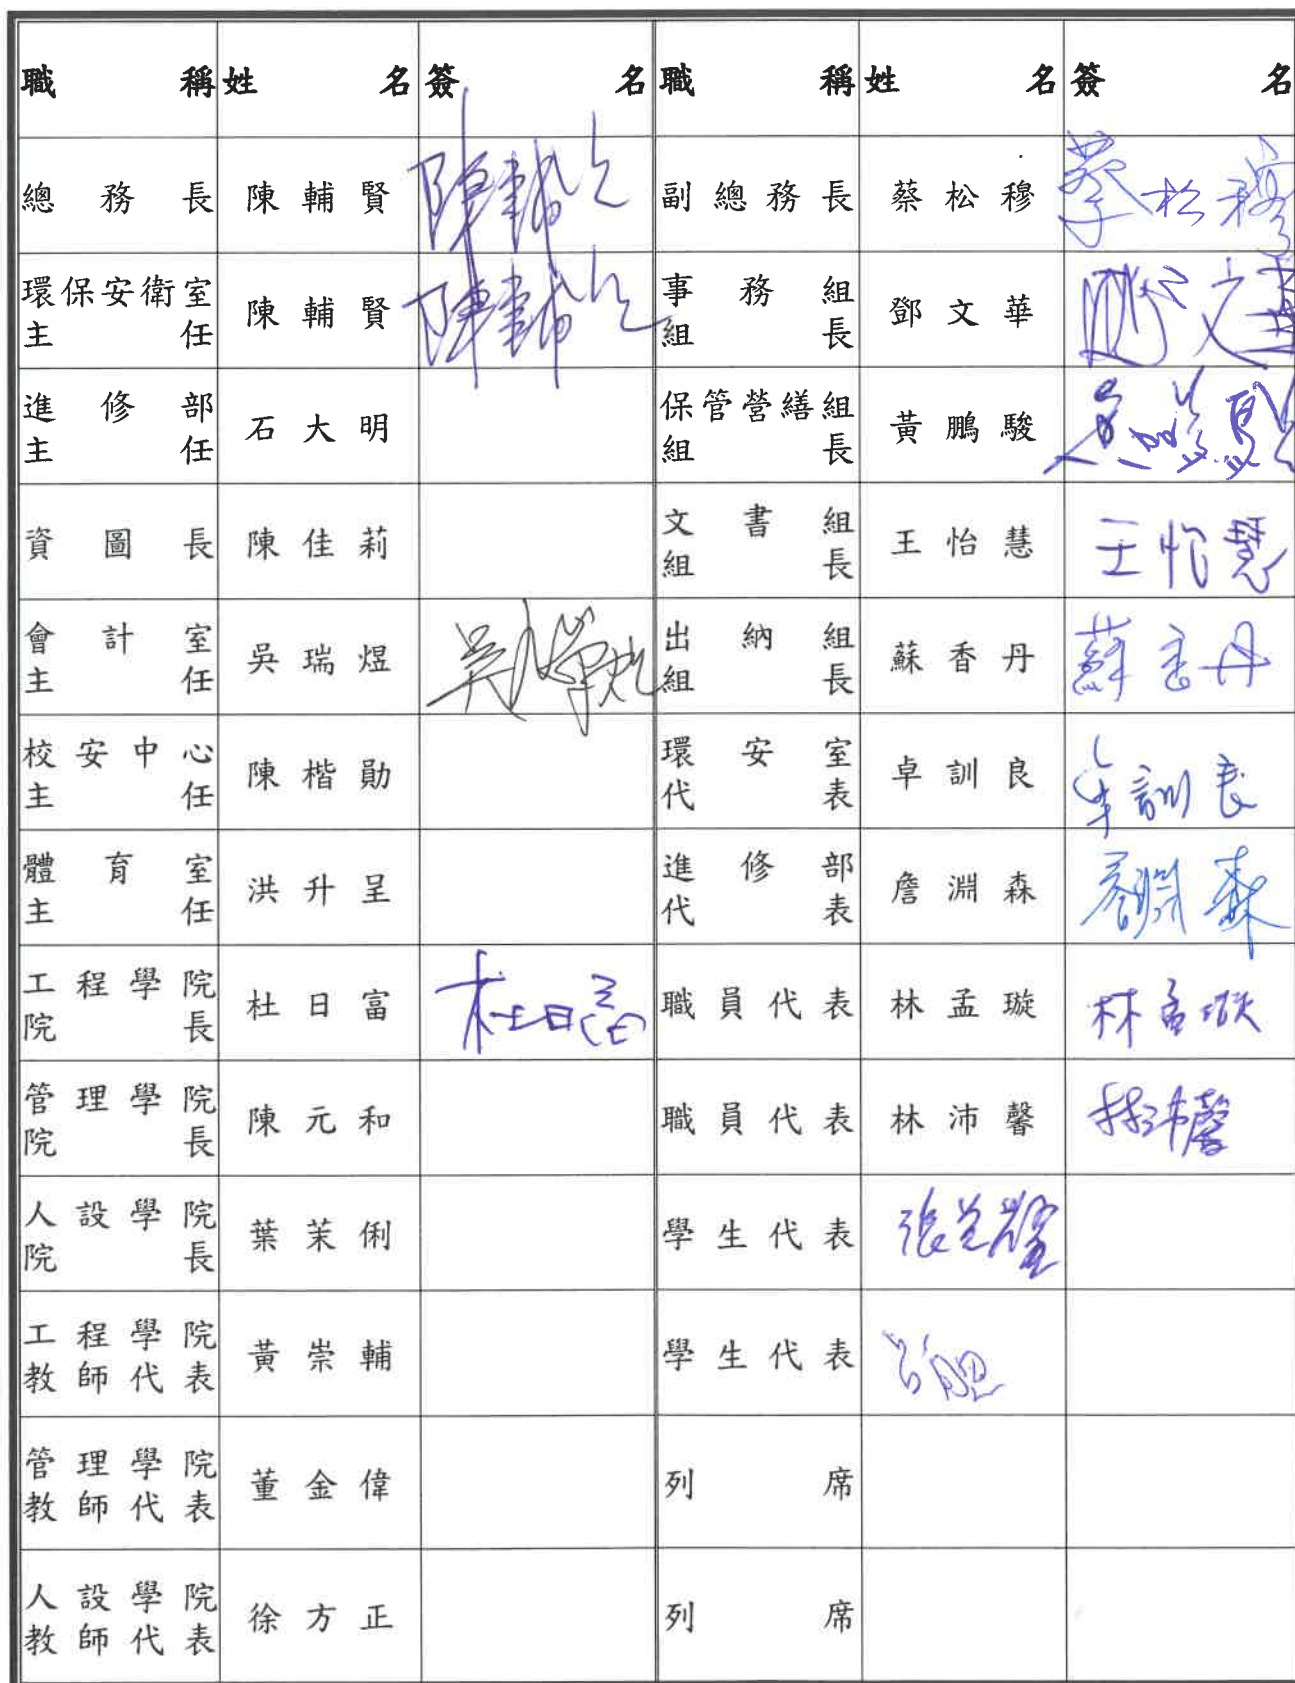 職稱 姓名 簽名 職稱 姓名 簽名
總務長 陳輔賢 陳輔賢 副總務長 蔡松穆 蔡松穆
環保安衛室主任 陳輔賢 陳輔賢 事務組組長 鄧文華 鄧文華
進修部主任 石大明 保管營繕組組長 黃鵬駿
資圖長 陳佳莉 文書組組長 王怡慧 王怡慧
會計室主任 吳瑞煜 吳瑞煜 出納組組長 蘇香丹 蘇香丹
校安中心主任 陳楷勛 環安室代表 卓訓良 卓訓良
體育室主任 洪升呈 進修部代表 詹淵森 詹淵森
工程學院院長 杜日富 杜日富 職員代表 林孟璇 林孟璇
管理學院院長 陳元和 職員代表 林沛馨 林沛馨
人設學院院長 葉茉俐 學生代表
工程學院教師代表 黃崇輔 學生代表
管理學院教師代表 董金偉 列席
人設學院教師代表 徐方正 列席